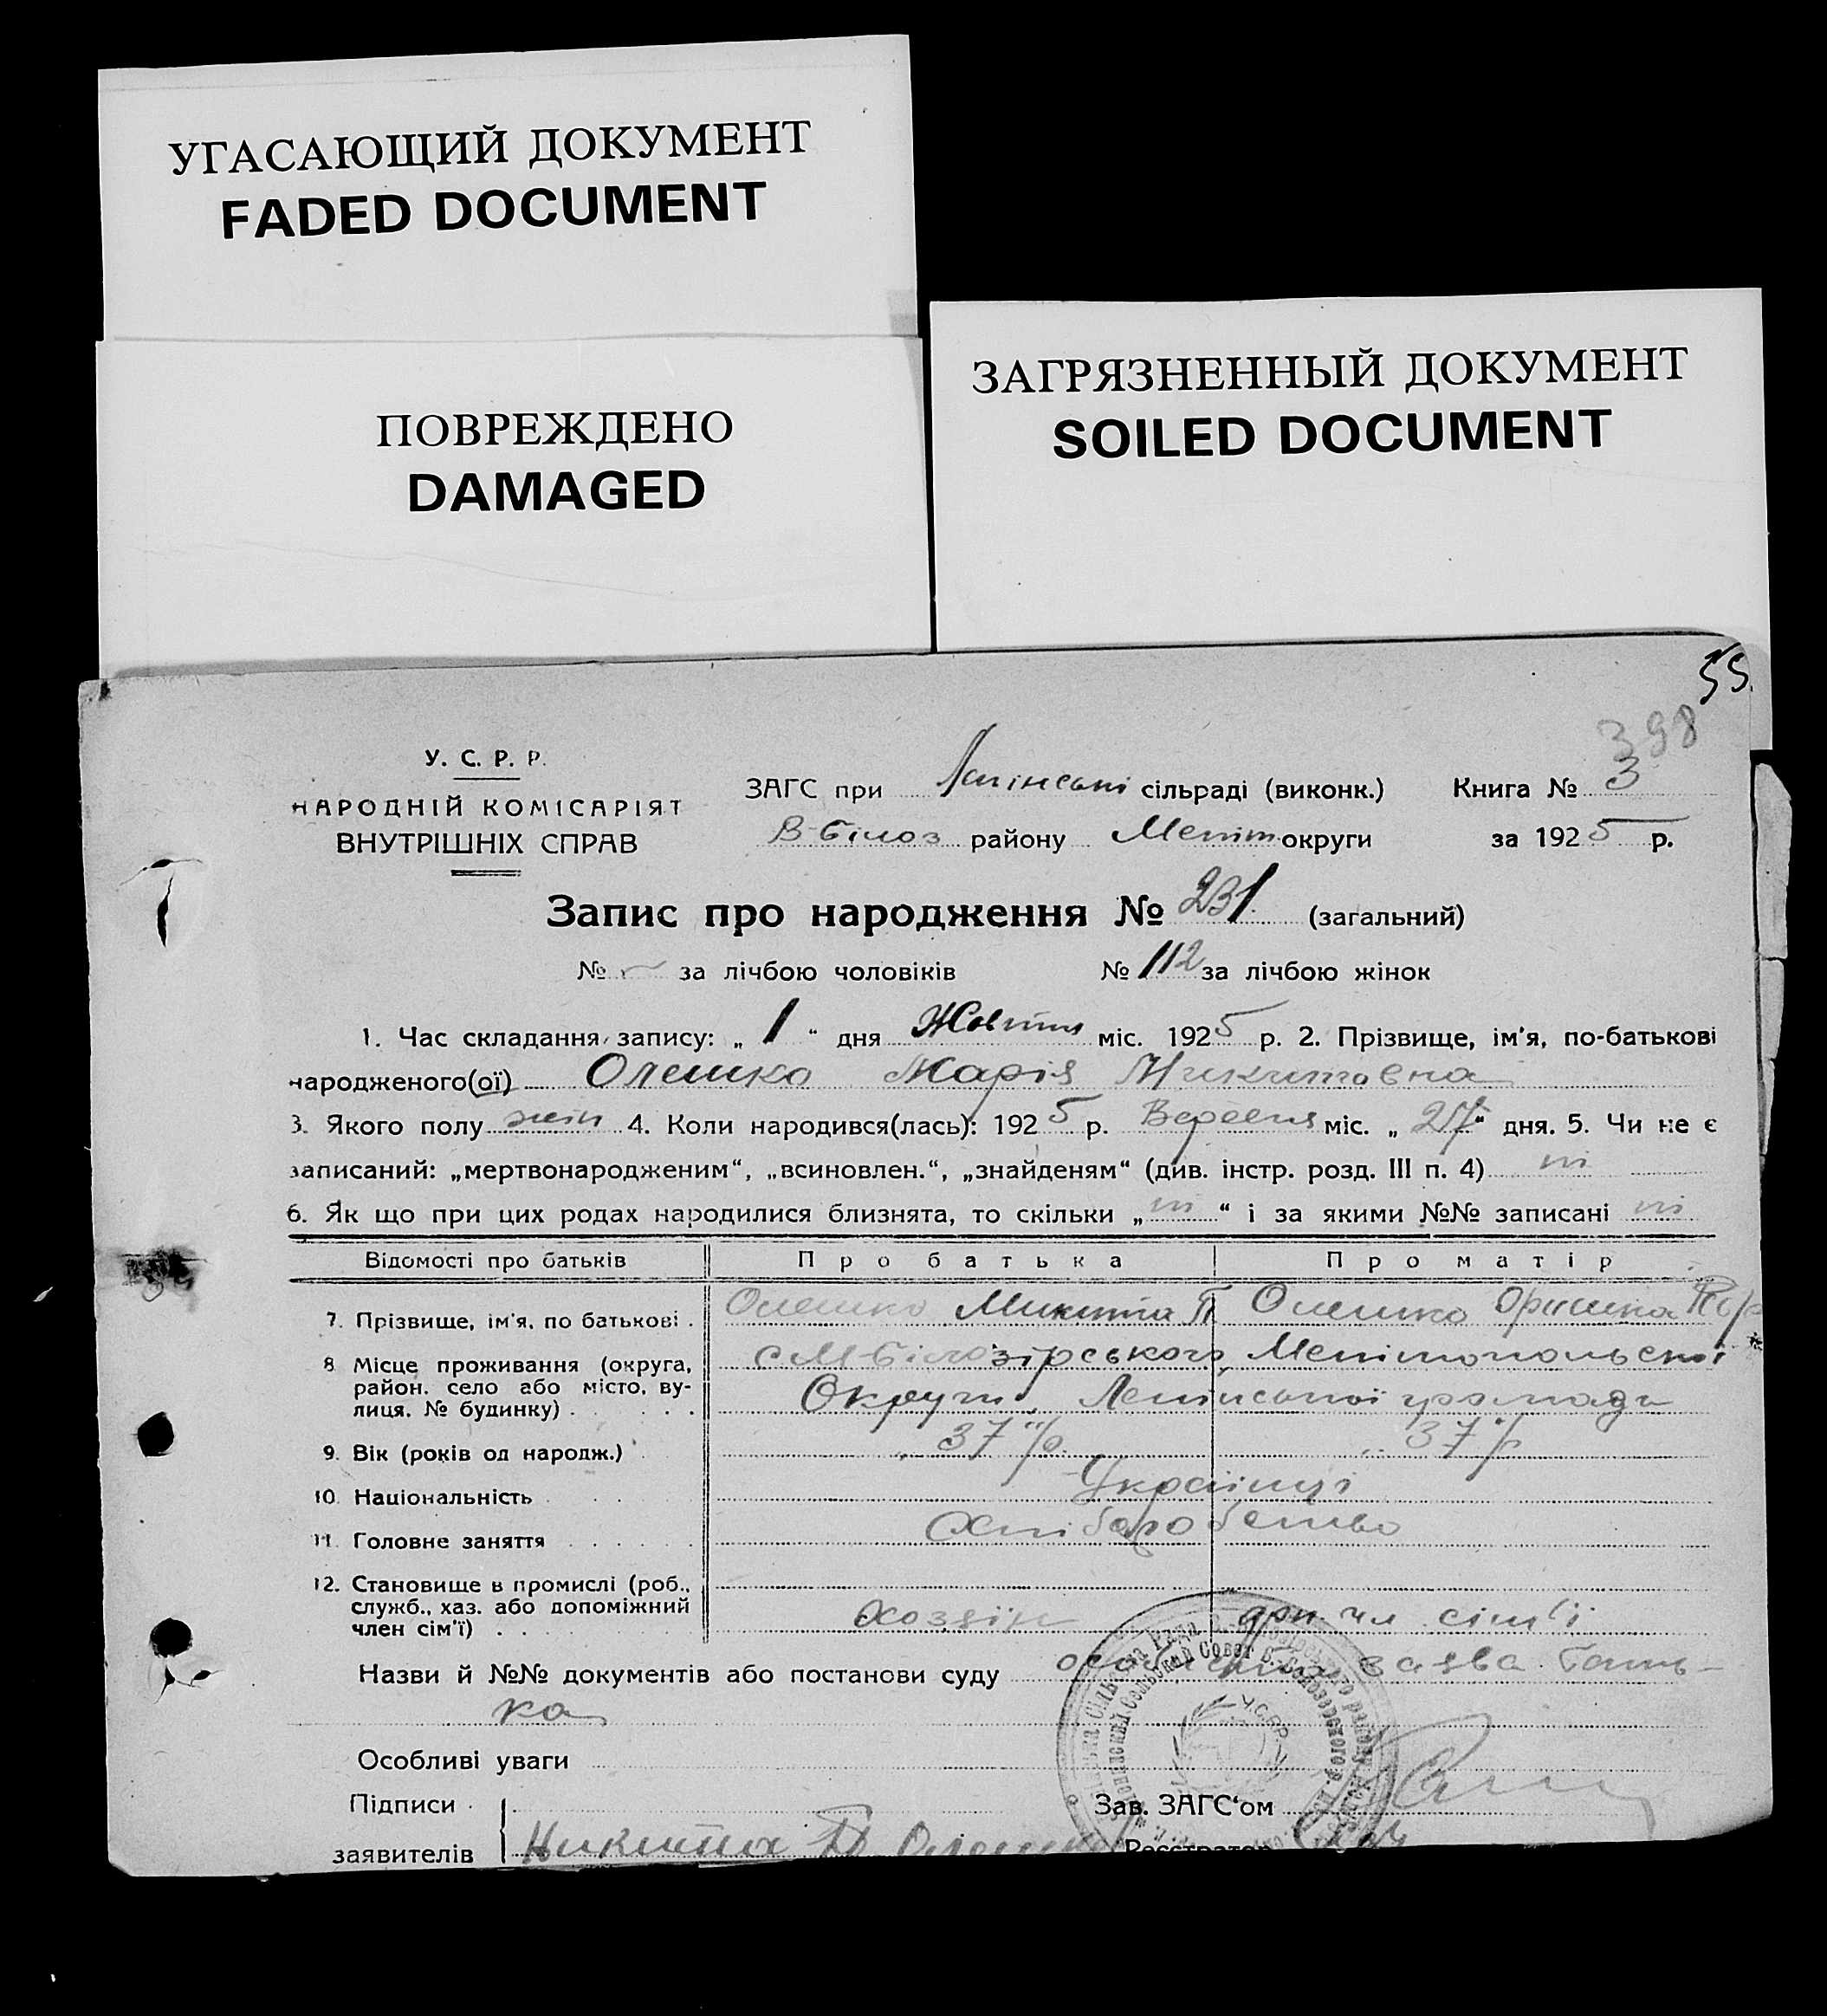 УГАСАЮЩИЙ ДОКУМЕНТ
FADED DOCUMENT
ПОВРЕЖДЕНО
DAMAGED
ЗАГРЯЗНЕННЫЙ ДОКУМЕНТ
SOILED DOCUMENT
55.
398
У. С. Р. Р.
НАРОДНІЙ КОМІСАРІЯТ
ВНУТРІШНІХ СПРАВ
ЗАГС при сільраді (виконк.) Книга № 3
В-Білоз району Меліт округи за 1925 р.
Запис про народження № 231 (загальний)
№ — за лічбою чоловіків № 112 за лічбою жінок
1. Час складання запису: „ 1 “ дня Жовтня міс. 1925 р. 2. Прізвище, ім'я, по-батькові
народженого(ої) Олешко Марія Микитовна
3. Якого полу жін 4. Коли народився(лась): 1925 р. Вересня міс. „ 27 “ дня. 5. Чи не є
записаний: „мертвонародженим“, „всиновлен.“, „знайденям“ (див. інстр. розд. III п. 4) ні
6. Як що при цих родах народилися близнята, то скільки „ ні “ і за якими №№ записані ні
Відомості про батьків Про батька Про матір
7. Прізвище, ім'я, по батькові . Олешко Микита П Олешко Оришка
8 Місце проживання (округа, Білозірського, Мелітопольскої
район, село або місто, ву-
лиця, № будинку) . Округи, громади
9. Вік (років од народж.) 37 р 37 р
10. Національність Українці
11. Головне заняття Хліборобство
12. Становище в промислі (роб.,
служб., хаз. або допоміжний
член сім'ї) . Хозяїн доп. чл сім'ї
Назви й №№ документів або постанови суду заява бать-
ка
Особливі уваги
Підписи
заявителів Никита П Олешко
Зав. ЗАГС'ом
Реєстратор
У.С.Р.Р.